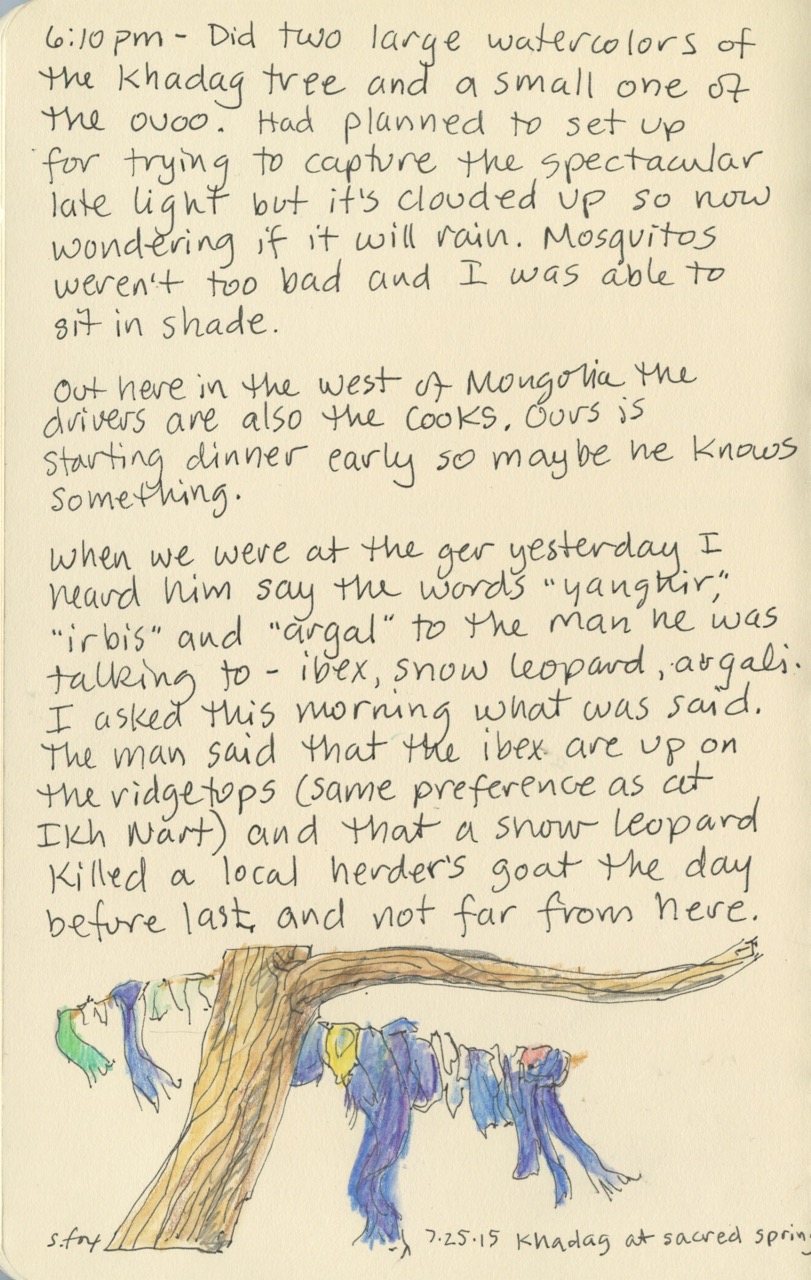 6:10 pm - Did two large watercolors of
the khadag tree and a small one of
the ovoo. Had planned to set up
for trying to capture the spectacular
late light but it's clouded up so now
wondering if it will rain. Mosquitos
weren't too bad and I was able to
sit in shade.
Out here in the west of Mongolia the
drivers are also the cooks. Ours is
starting dinner early so maybe he knows
something.
When we were at the ger yesterday I
heard him say the words "yanghir,"
"irbis" and "argal" to the man he was
talking to - ibex, snow leopard, argali.
I asked this morning what was said.
The man said that the ibex are up on
the ridgetops (same preference as at
Ikh Nart) and that a snow leopard
killed a local herder's goat the day
before last, and not far from here.
s.fox 7.25.15 Khadag at sacred spring